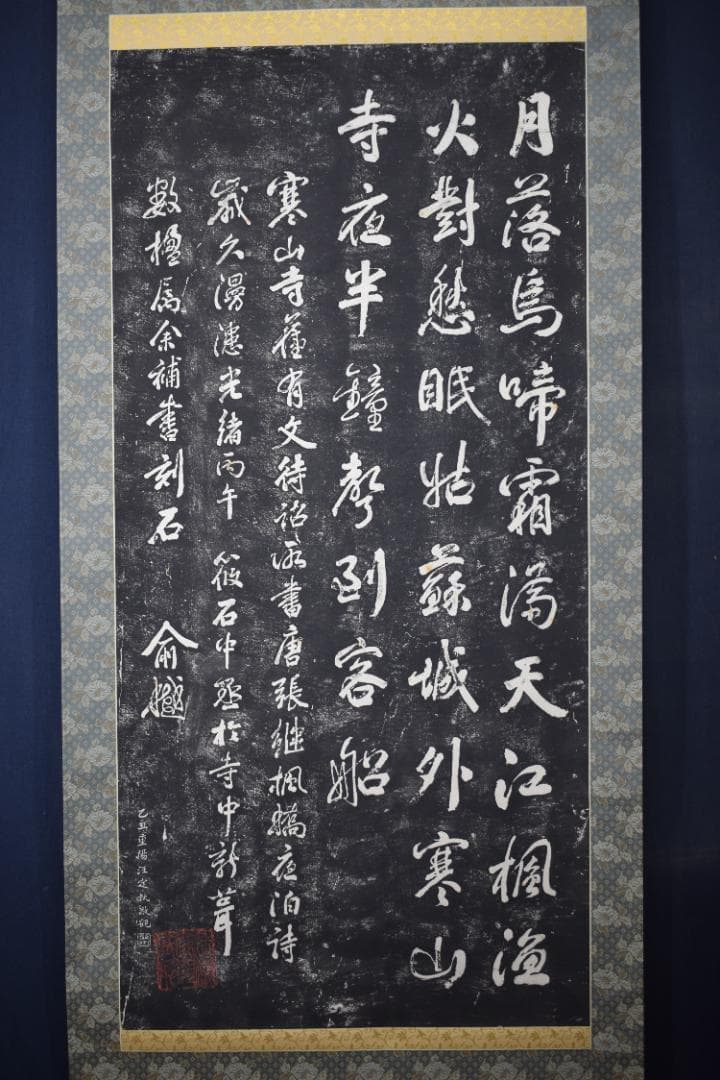 月落烏啼霜滿天江楓漁
火對愁眠姑蘇城外寒山
寺夜半鐘聲到客船
寒山寺舊有文待詔所書唐張継楓橋夜泊詩
歲久漫漶光緒丙午筱石中丞於寺中新葺
數楹属余補書刻石
俞樾
乙丑重陽汪定執敬觀